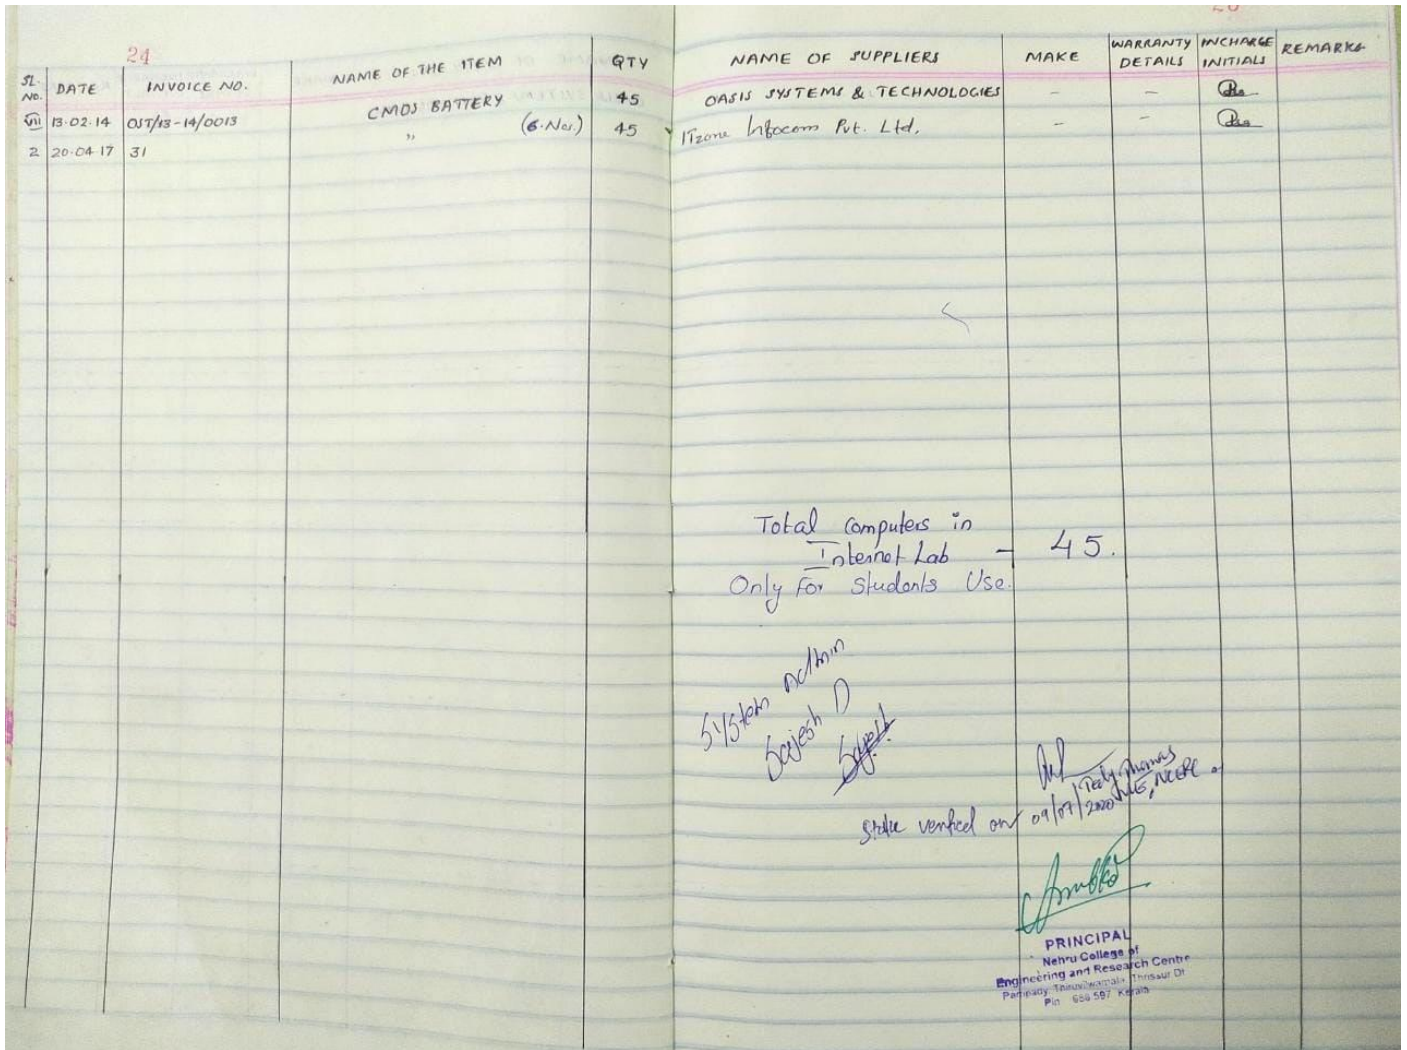 24
SL. NO. DATE INVOICE NO. NAME OF THE ITEM QTY NAME OF SUPPLIERS MAKE WARRANTY DETAILS INCHARGE INITIALS REMARKS
13.02.14 OST/13-14/0013 CMOS BATTERY 45 OASIS SYSTEMS & TECHNOLOGIES - -
2 20.04.17 31 ,, (6.Nos.) 45 ITzone Infocom Pvt. Ltd. - -
Total Computers in
Internet Lab - 45.
Only for Students Use.
System Admin
Sajesh D
Tedy Thomas
verified on 09/07/2020 NCERC.
PRINCIPAL
Nehru College of
Engineering and Research Centre
Pampady, Thiruvilwamala, Thrissur Dt
Pin 680 597 Kerala